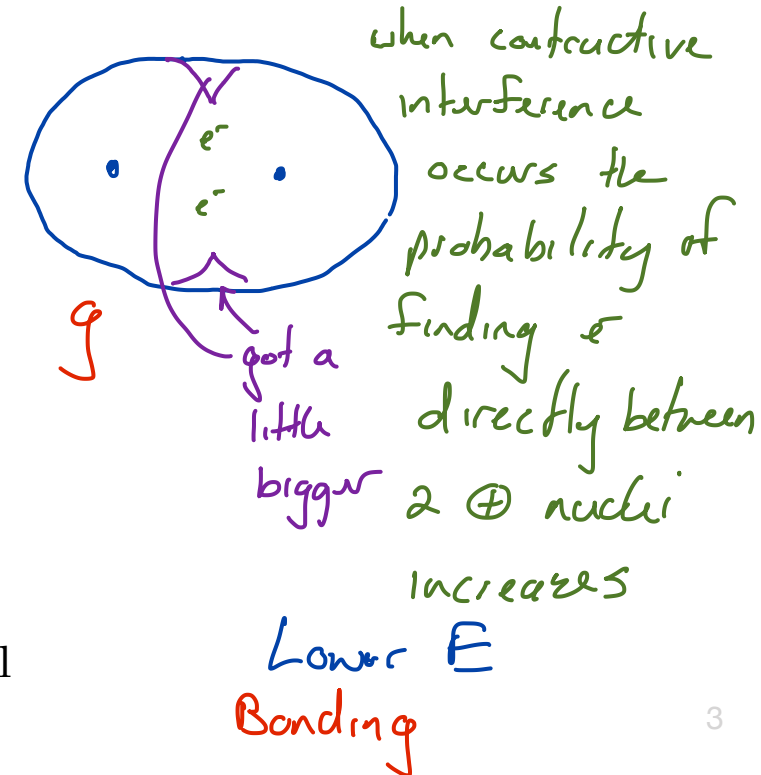 when contructive
interference
occurs the
probability of
finding e⁻
directly between
2 ⊕ nuclei
increases
e⁻
e⁻
g
got a
little
bigger
l
Lower E
Bonding
3